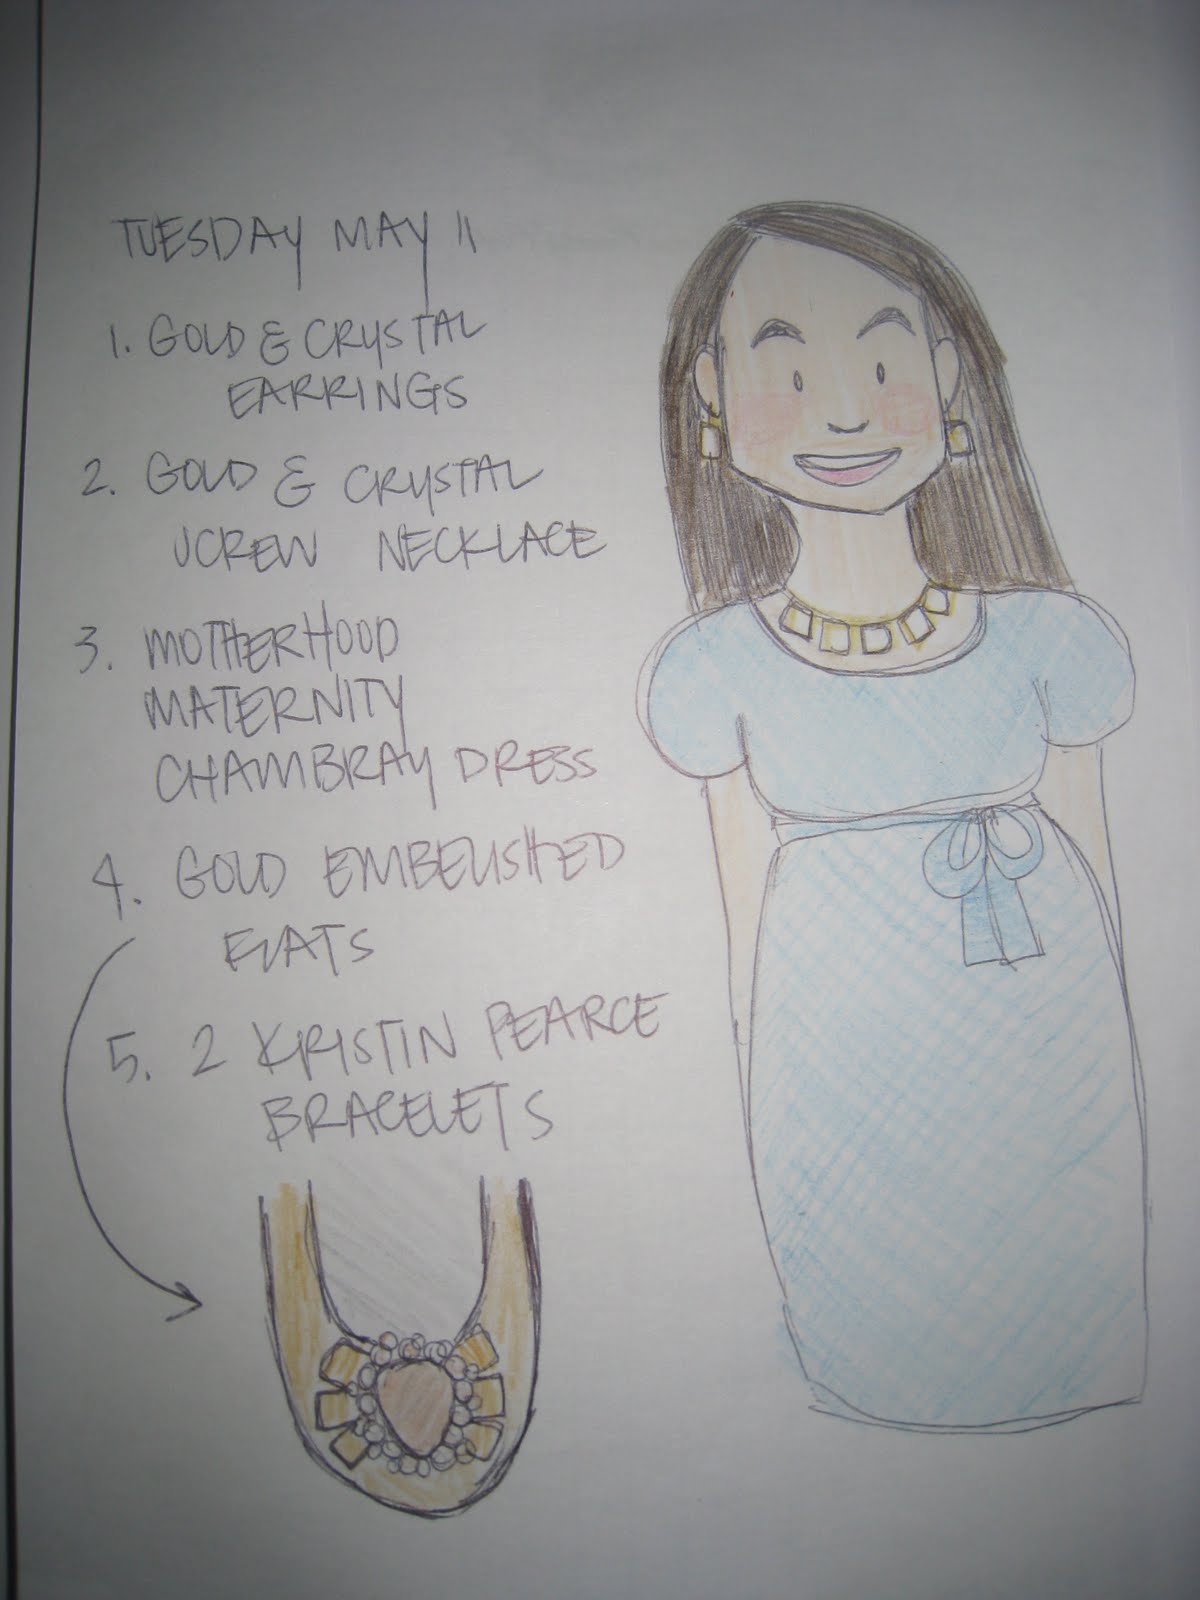 TUESDAY MAY 11
1. GOLD & CRYSTAL
EARRINGS
2. GOLD & CRYSTAL
JCREW NECKLACE
3. MOTHERHOOD
MATERNITY
CHAMBRAY DRESS
4. GOLD EMBELISHED
FLATS
5. 2 KRISTIN PEARCE
BRACELETS